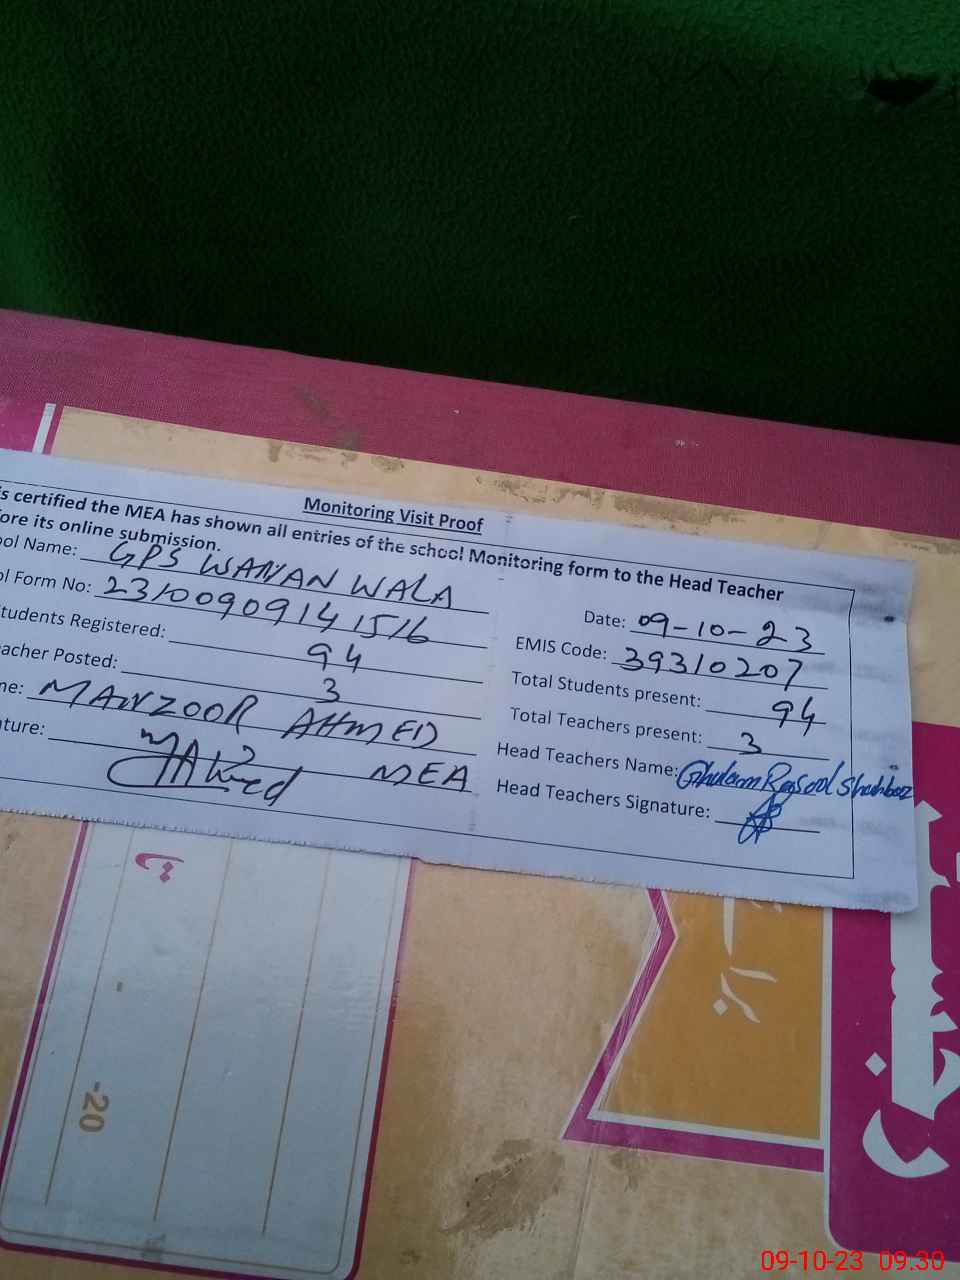 Monitoring Visit Proof
is certified the MEA has shown all entries of the school Monitoring form to the Head Teacher
ore its online submission.
ool Name: GPS WANAN WALA
ol Form No: 231009091415 16
tudents Registered: 94
acher Posted: 3
me: MANZOOR AHMED
ature: MAhmed MEA
Date: 09-10-23
EMIS Code: 39310207
Total Students present: 94
Total Teachers present: 3
Head Teachers Name: Ghulam Rasool Shahbaz
Head Teachers Signature:
-20
رجسٹر
09-10-23 09:30